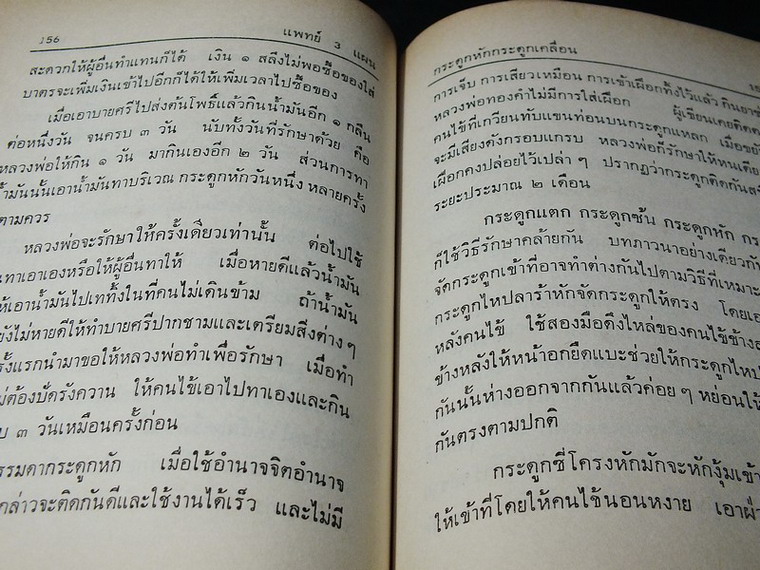 156 แพทย์ 3 แผน
สะดวกให้ผู้อื่นทำแทนก็ได้ เงิน ๑ สลึงไม่พอซื้อของใส่
บาตรจะเพิ่มเงินเข้าไปอีกก็ได้ให้เพิ่มเวลาไปซื้อของ
เมื่อเอาบายศรีไปส่งต้นโพธิ์แล้วกินน้ำมันอีก ๑ กลืน
ต่อหนึ่งวัน จนครบ ๓ วัน นับทั้งวันที่รักษาด้วย คือ
หลวงพ่อให้กิน ๑ วัน มากินเองอีก ๒ วัน ส่วนการทา
น้ำมันนั้นเอาน้ำมันทาบริเวณ กระดูกหักวันหนึ่ง หลายครั้ง
ตามควร
หลวงพ่อจะรักษาให้ครั้งเดียวเท่านั้น ต่อไปใช้
ทาเอาเองหรือให้ผู้อื่นทาให้ เมื่อหายดีแล้วน้ำมัน
ให้เอาน้ำมันไปเททิ้งในที่คนไม่เดินข้าม ถ้าน้ำมัน
ยังไม่หายดีให้ทำบายศรีปากชามและเตรียมสิ่งต่าง ๆ
ครั้งแรกนำมาขอให้หลวงพ่อทำเพื่อรักษา เมื่อทำ
ไม่ต้องปัดรังควาน ให้คนไข้เอาไปทาเองและกิน
๓ วันเหมือนครั้งก่อน
ธรรมดากระดูกหัก เมื่อใช้อำนาจจิตอำนาจ
กล่าวจะติดกันดีและใช้งานได้เร็ว และไม่มี
กระดูกหักกระดูกเคลื่อน
การเจ็บ การเสียวเหมือน การเข้าเฝือกทิ้งไว้แล้ว กินยา
หลวงพ่อทองคำไม่มีการใส่เฝือก ผู้เขียนเคย
คนไข้ที่เกวียนทับแขนท่อนบนกระดูกแหลก เมื่อ
จะมีเสียงดังกรอบแกรบ หลวงพ่อก็รักษาให้หน
เฝือกคงปล่อยไว้เปล่า ๆ ปรากฏว่ากระดูกติดกัน
ระยะประมาณ ๒ เดือน
กระดูกแตก กระดูกซ้น กระดูกหัก
ก็ใช้วิธีรักษาคล้ายกัน บทภาวนาอย่างเดียวกัน
จัดกระดูกเข้าที่อาจทำต่างกันไปตามวิธีที่เหมาะ
กระดูกไหปลาร้าหักจัดกระดูกให้ตรง โดย
หลังคนไข้ ใช้สองมือดึงไหล่ของคนไข้ข้าง
ข้างหลังให้หน้าอกยืดแบะช่วยให้กระดูกไห
กันนั้นห่างออกจากกันแล้วค่อย ๆ หย่อนให้
กันตรงตามปกติ
กระดูกซี่โครงหักมักจะหักงุ้มเข้า
ให้เข้าที่โดยให้คนไข้นอนหงาย เอา